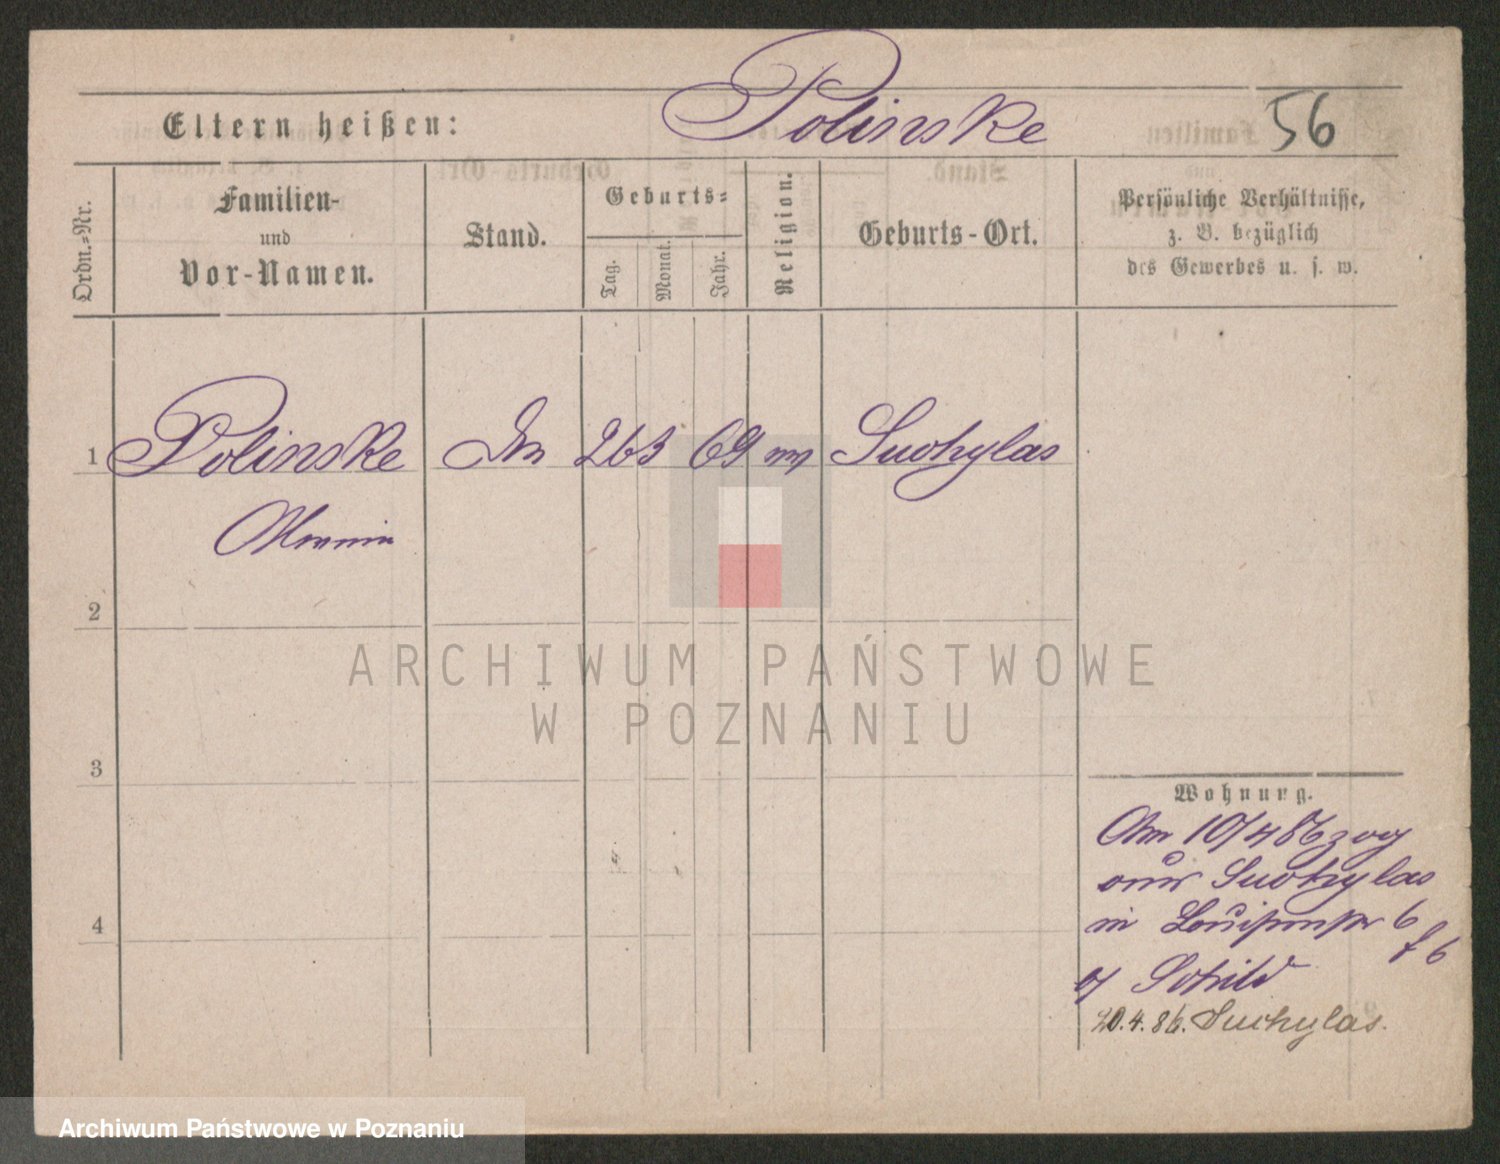 Polinske
56
Eltern heißen:
Ordn.=Nr.
Familien-
und
Vor-Namen.
Stand.
Geburts=
Tag.
Monat.
Jahr.
Religion.
Geburts-Ort.
Persönliche Verhältnisse,
z. B. bezüglich
des Gewerbes u. s. w.
1 Polinske 26 3 69 Suchylas
2
3
4
Wohnung.
Am 10/4 86 zog
aus Suchylas
in Louisenstr 6
b/ Schild
20.4.86. Suchylas.
ARCHIWUM PAŃSTWOWE
W POZNANIU
Archiwum Państwowe w Poznaniu